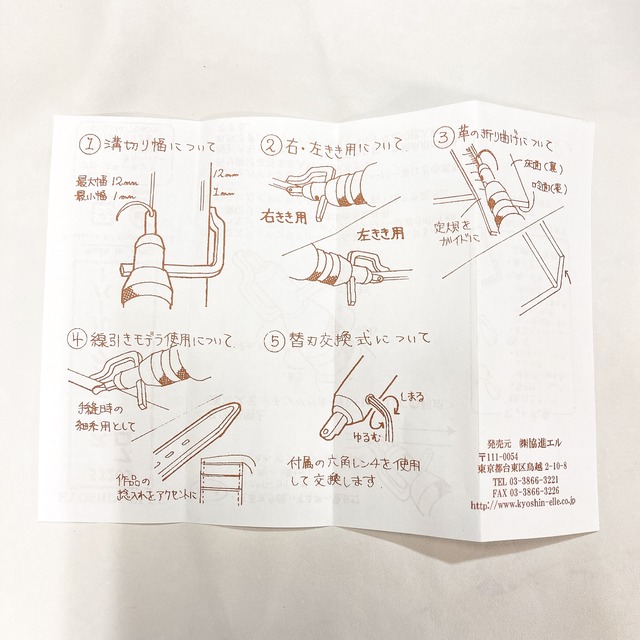 ① 溝切り幅について
最大幅 12mm
最小幅 1mm
12mm
1mm
② 右・左きき用について
右きき用
左きき用
③ 革の折り曲げについて
床面(裏)
吟面(表)
定規を
ガイドに
④ 線引きモデラ使用について
手縫時の
細糸用として
作品の
捻入れをアクセントに
⑤ 替刃交換式について
しまる
ゆるむ
付属の六角レンチを使用
して交換します
発売元 ㈱協進エル
〒111-0054
東京都台東区鳥越 2-10-8
TEL 03-3866-3221
FAX 03-3866-3226
http://www.kyoshin-elle.co.jp